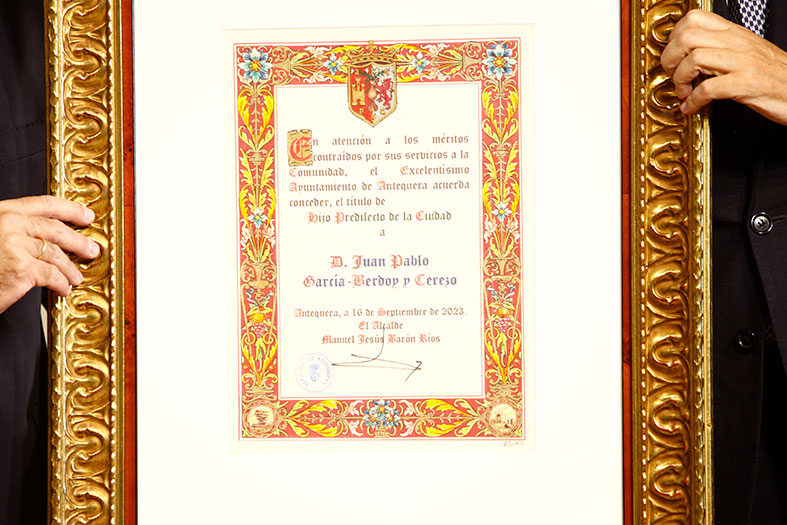 En atención a los méritos
contraídos por sus servicios a la
Comunidad, el Excelentísimo
Ayuntamiento de Antequera acuerda
conceder, el título de
Hijo Predilecto de la Ciudad
a
D. Juan Pablo
García-Berdoy y Cerezo
Antequera, a 16 de Septiembre de 2023.
El Alcalde
Manuel Jesús Barón Ríos